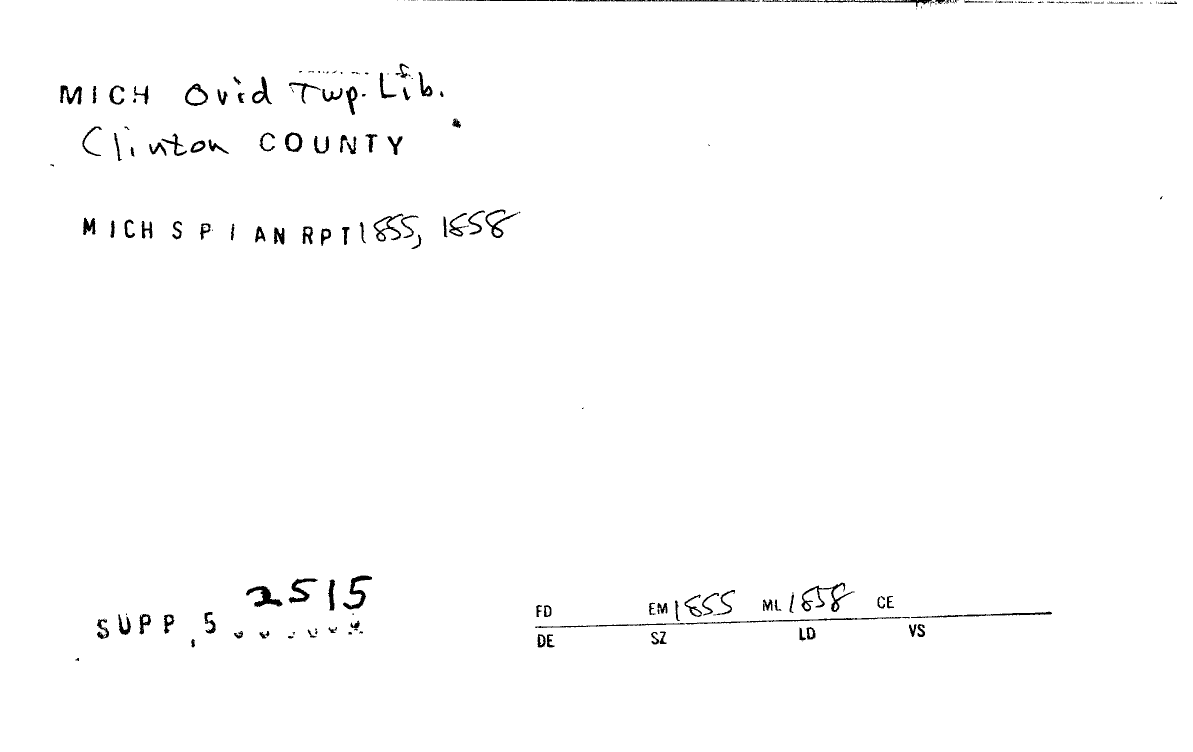 MICH Ovid Twp. Lib.
Clinton COUNTY
MICH S P I AN RPT 1855, 1858
2515
SUPP, 5
FD EM 1855 ML 1858 CE
DE SZ LD VS